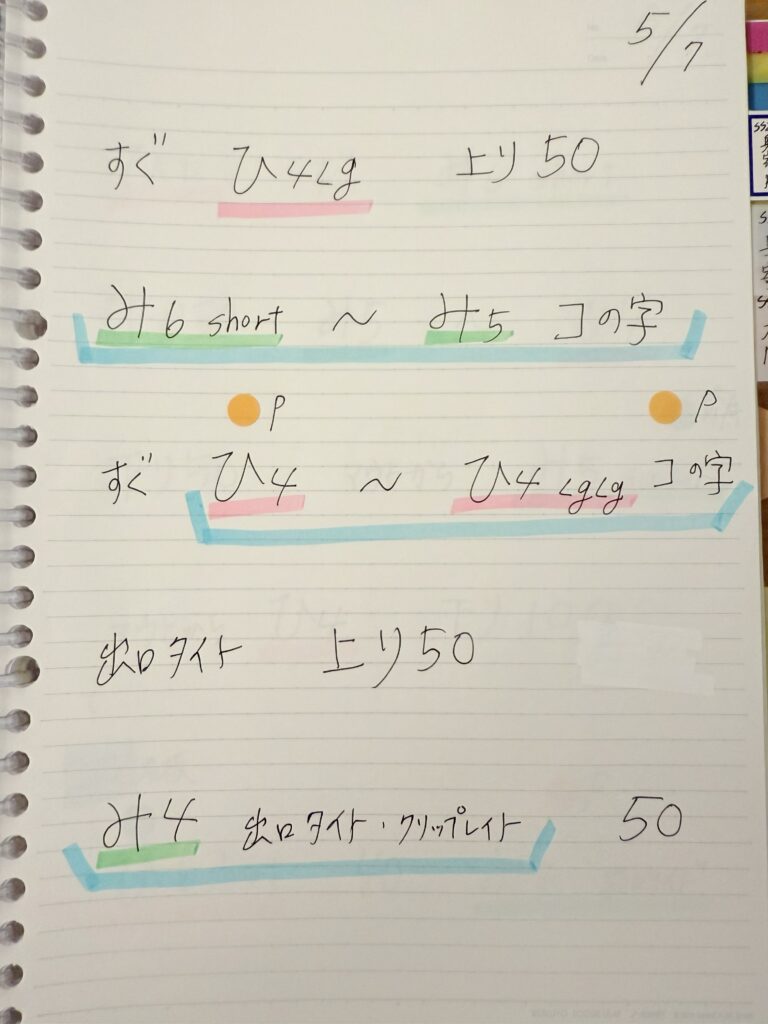 5/7
すぐ ひ4<g 上り50
み6 short ～ み5 コの字
P P
すぐ ひ4 ～ ひ4<g<g コの字
出口タイト 上り50
み4 出口タイト・クリップレイト 50